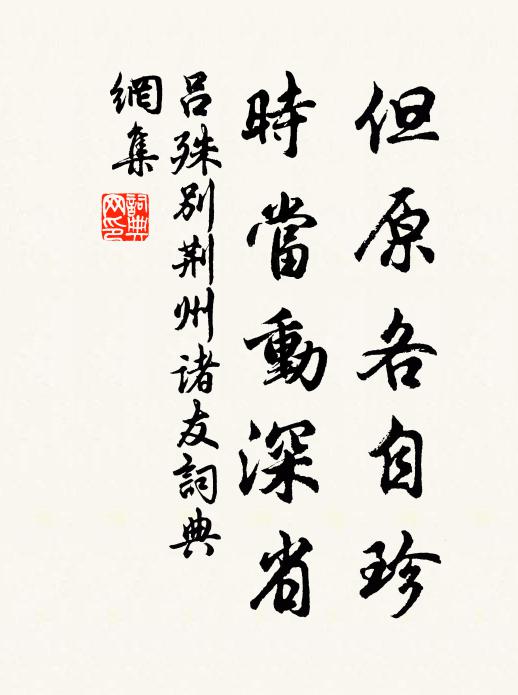 但原各自珍
時當動深省
呂殊別荆州諸友詞典
網集
詞典網印